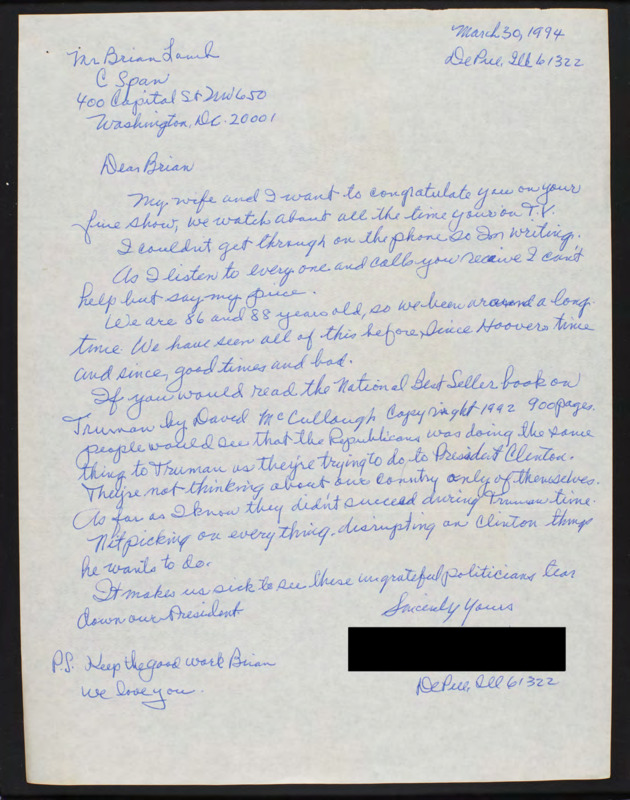 March 30, 1994
DePue, Ill 61322
Mr Brian Lamb
C Span
400 Capital St NW 650
Washington, D.C. 20001
Dear Brian
My wife and I want to congratulate you on your
fine show, we watch about all the time your on T.V.
I couldn't get through on the phone so I'm writing.
As I listen to every one and calls you receive I can't
help but say my piece.
We are 86 and 88 years old, so we been around a long
time. We have seen all of this before, since Hoovers time
and since, good times and bad.
If you would read the National Best Seller book on
Truman by David McCullough Copyright 1992 900 pages.
people would see that the Republicans was doing the same
thing to Truman as they're trying to do, to President Clinton.
They're not thinking about our Country only of themselves.
As far as I know they didn't succeed during Truman time.
Nit picking on everything, disrupting on Clinton things
he wants to do.
It makes us sick to see these ungrateful politicians tear
down our President
Sincerely Yours
DePue, Ill 61322
P.S. Keep the good work Brian
We love you.